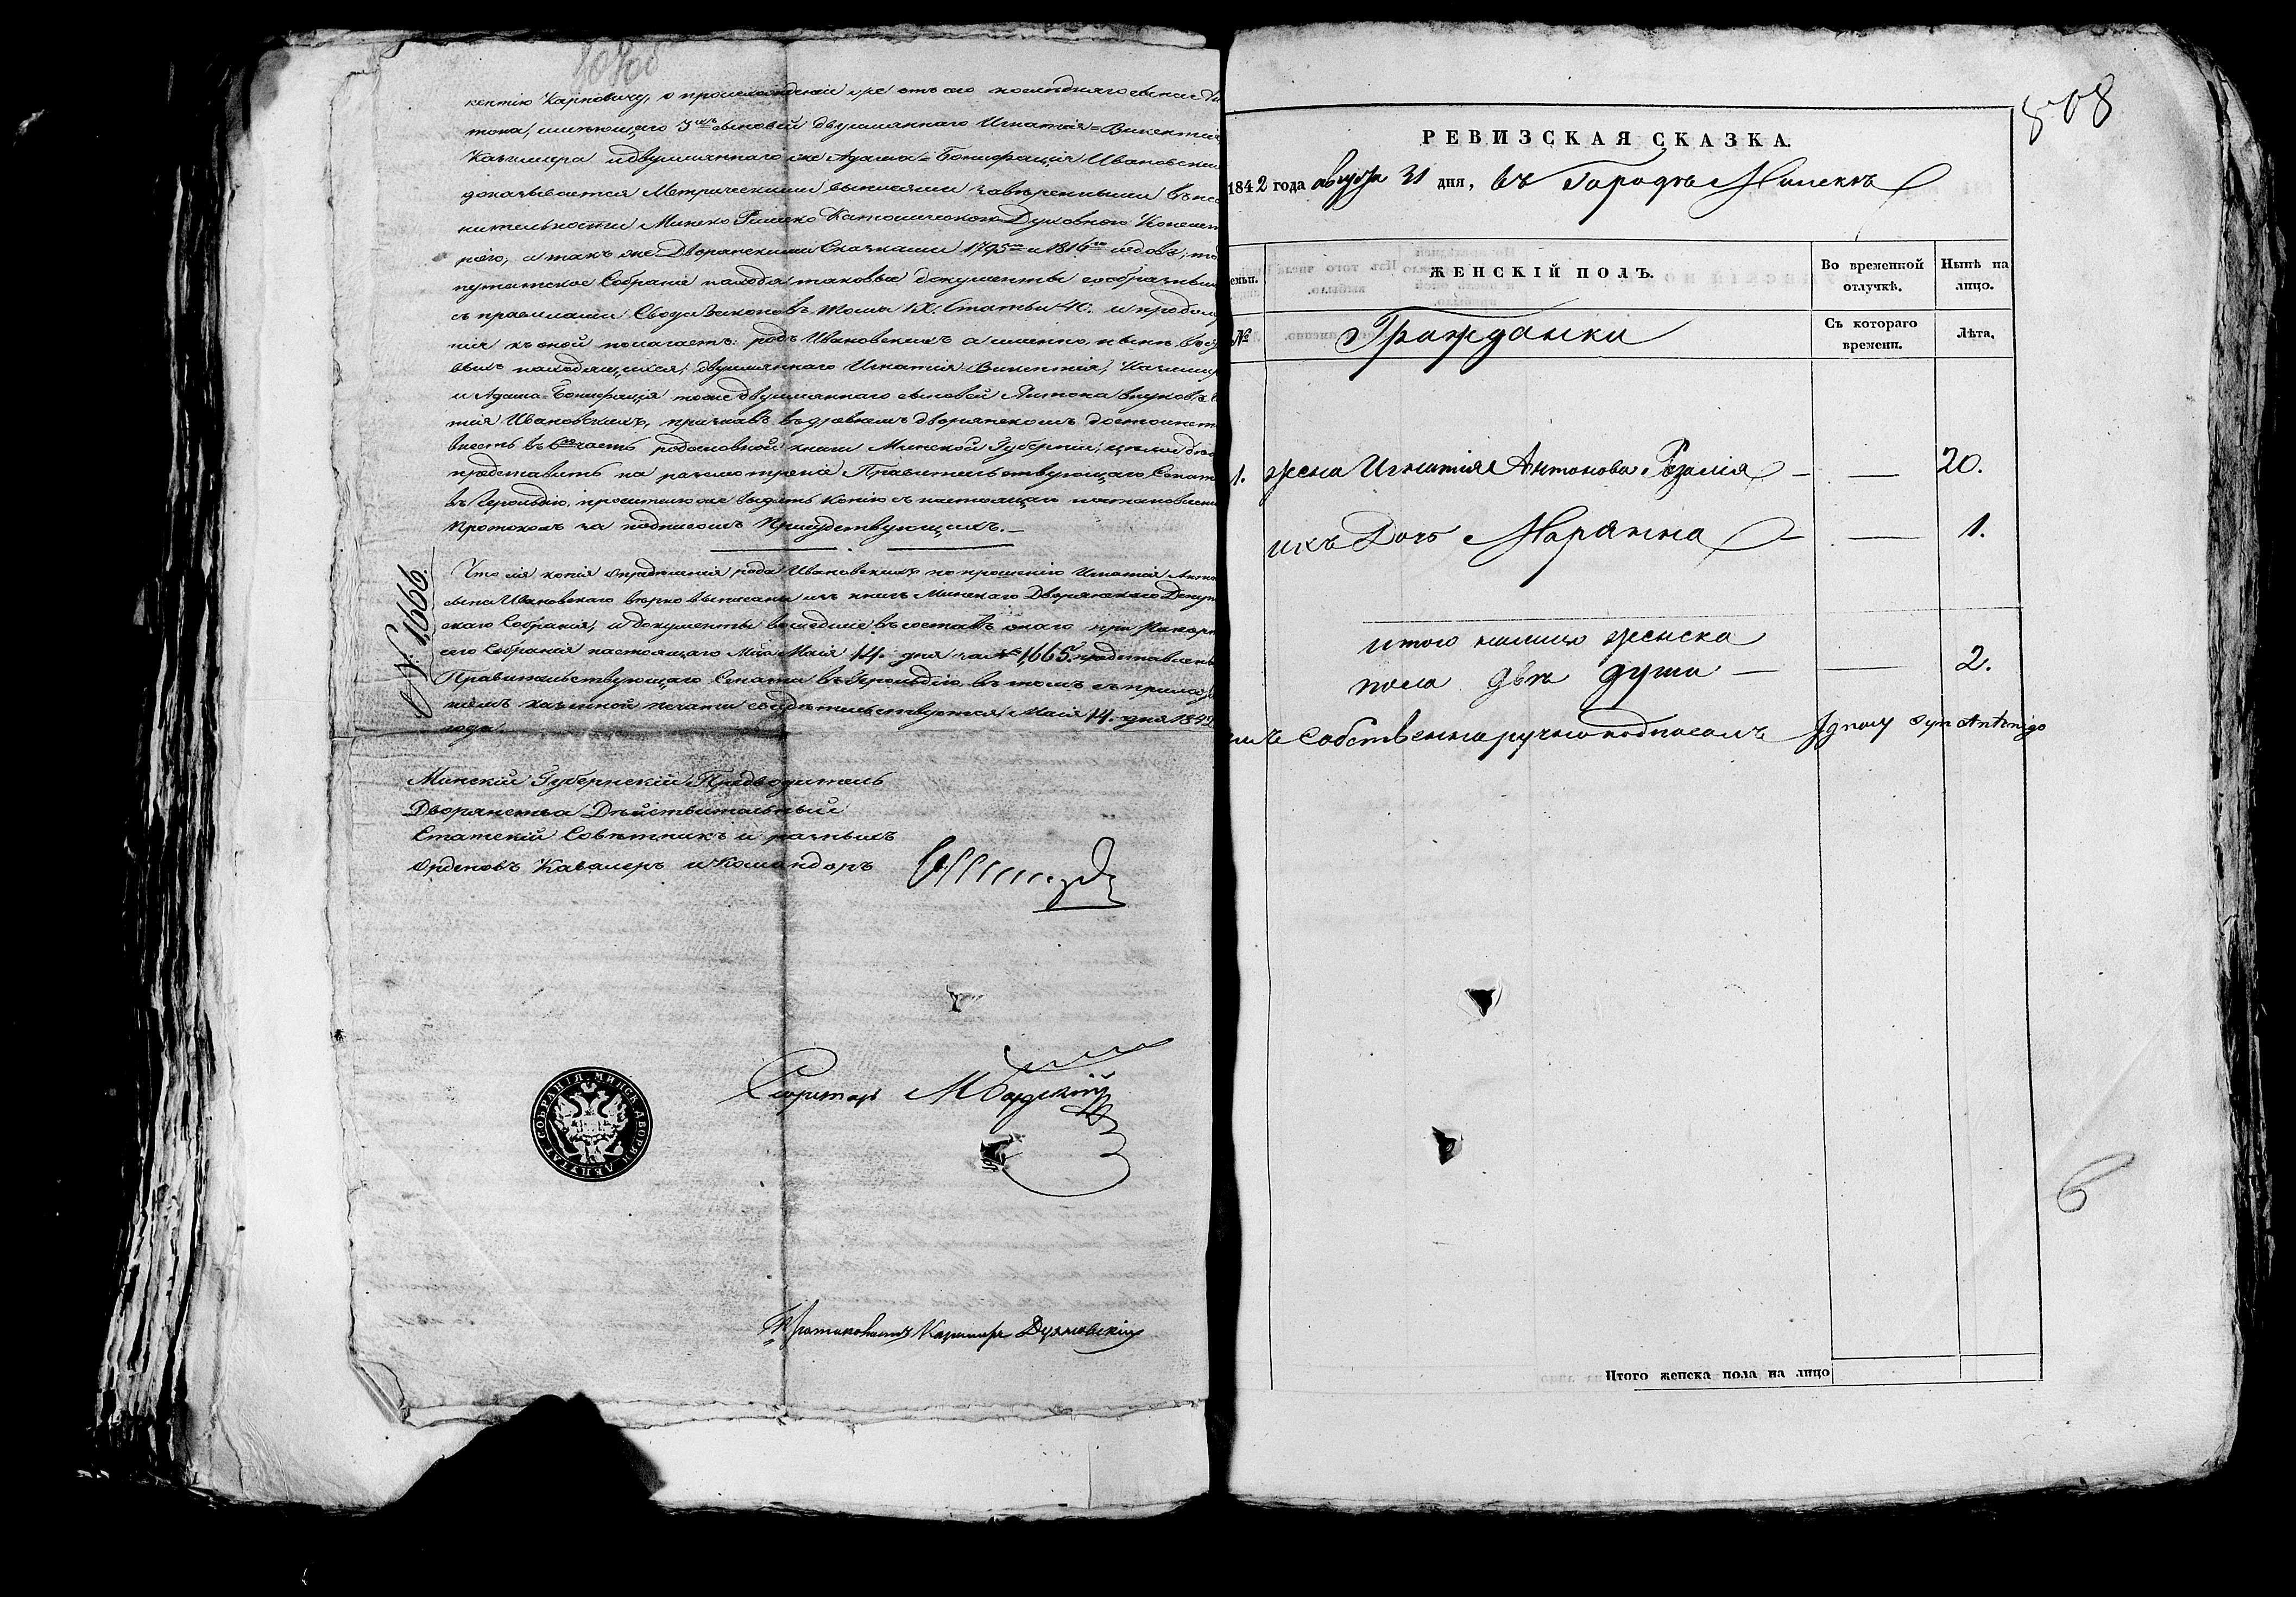 кентію Карповичу, о происхожденіи же отъ сего послѣдняго сына Ан
тона, имѣющаго 3хъ сыновей двуимяннаго Игнатія=Викентія
Казимира и двуимяннаго же Адама=Бонифація Ивановски
доказывается Метрическими выписями завѣренными въ
нительности Минско Римско Католической Духовной Консист
ріею, а такъ же Дворянскими Сказками 1795го и 1816го годовъ;
путатское Собраніе находя таковые документы сообразны
съ правилами Свода Законовъ Тома IX. Статьи 40. и продол
нія къ оной полагаетъ: родъ Ивановскихъ а именно, нынѣ въ
выхъ находящихся, двуимяннаго Игнатія Викентія, Казимир
и Адама=Бонифація тоже двуимяннаго сыновей Антона внуковъ
тія Ивановскихъ, признавъ въ древнемъ дворянскомъ достоинст
внесть въ 6ю часть родословной книги Минской Губерніи,
представить на разсмотреніе Правительствующаго Сенат
въ Герольдію, просителю же выдать копію съ настоящаго постановлен
Протоколъ за подписомъ Присудствующихъ.—
Что сія копія опредѣленія рода Ивановскихъ по прошенію Игнатія Анто
сына Ивановскаго вѣрно выписана изъ книгъ Минскаго Дворянскаго Депут
скаго Собранія, и документы вошедшіе въ составъ онаго при Рапорт
сего Собранія настоящаго Мца Маія 14. дня за № 1,665. представлены
Правительствующаго Сената въ Герольдію, въ томъ съ прилож
ніемъ казенной печати свидѣтельствуется, Маія 14. дня 1842
года.
№ 1,666.
Минскій Губернскій Предводитель
Дворянства Дѣйствительный
Статскій Совѣтникъ и разныхъ
Орденовъ Кавалеръ и Командоръ
Секретарь
МИНСК. ДВОРЯН. ДЕПУТАТ. СОБРАНІЯ.
Протоколистъ Казимиръ
508
РЕВИЗСКАЯ СКАЗКА.
1842 года августа 31 дня, въ Городѣ Минскѣ
ЖЕНСКІЙ ПОЛЪ.
Во временной отлучкѣ.
Нынѣ на лицо.
№
Гражданки
Съ котораго времени.
Лѣта.
1. жена Игнатія Антонова Розалія — — 20.
ихъ Дочь Марянна — — 1.
итого налицо женска
пола двѣ души — — 2.
собственноручно подписалъ Ignacy syn Antoniego
6
Итого женска пола на лицо